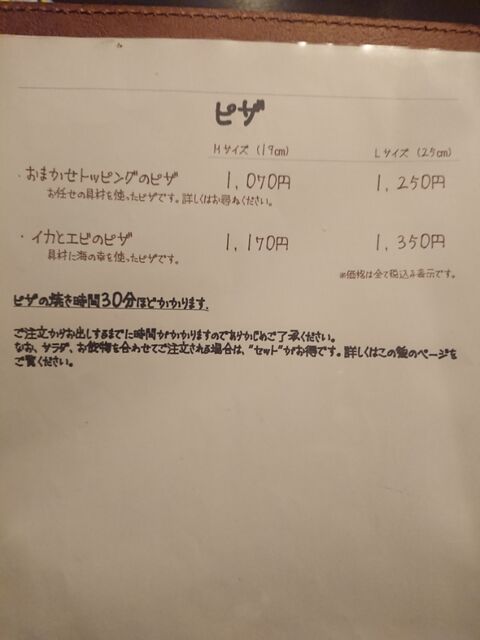 ピザ
Mサイズ (19cm) Lサイズ (25cm)
・おまかせトッピングのピザ 1,070円 1,250円
お任せの具材を使ったピザです。詳しくはお尋ねください。
・イカとエビのピザ 1,170円 1,350円
具材に海の幸を使ったピザです。
※価格は全て税込み表示です。
ピザの焼き時間30分ほどかかります。
ご注文からお出しするまでに時間がかかりますのであらかじめご了承ください。
なお、サラダ、お飲物を合わせてご注文される場合は、"セット"がお得です。詳しくはこの後のページを
ご覧ください。